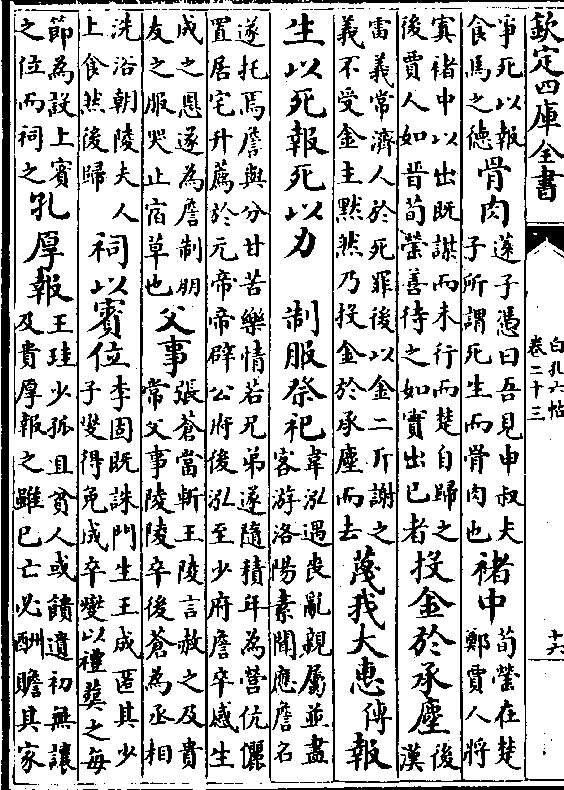 欽定四庫全書
白孔六帖
卷二十三
十六
爭死以報
食馬之德
骨肉
薳子馮曰吾見申叔夫
子所謂死生而骨肉也
褚中
荀罃在楚
鄭賈人將
寘褚中以出既謀而未行而楚自歸之
後賈人如晉荀罃善待之如實出已者
投金於承塵
後
漢
雷義常濟人於死罪後以金二斤謝之
義不受金主黙然乃投金於承塵而去
蔑我大惠
傳
報
生以死報死以力
制服祭祀
韋泓遇喪亂親屬並盡
客游洛陽素聞應詹名
遂托焉詹與分甘苦樂情若兄弟遂隨積年為營伉儷
置居宅升薦於元帝帝辟公府後泓至少府詹卒感生
成之恩遂為詹制朋
友之服哭止宿草也
父事
張蒼當斬王陵言赦之及貴
常父事陵陵卒後蒼為丞相
洗浴朝陵夫人
上食然後歸
祠以賓位
李固既誅門生王成匿其少
子燮得免成卒燮以禮葬之每
節為設上賓
之位而祠之
孔
厚報
王珪少孤且貧人或饋遺初無讓
及貴厚報之雖已亡必酬贍其家